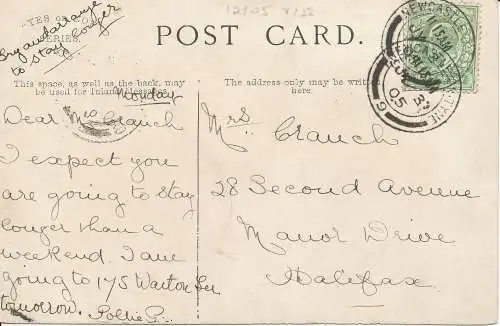 12/05
YES
SERIES.
Try and arrange
to stay longer
POST CARD.
This space, as well as the back, may
be used for Inland
The address only may be written
here.
Monday
Dear Mrs Crauch
I expect you
are going to stay
longer than a
weekend. I am
going to 175
tomorrow. Pollie P.
Mrs Crauch
28 Second Avenue
Manor Drive
Halifax
NEWCASTLE-ON-TYNE
05